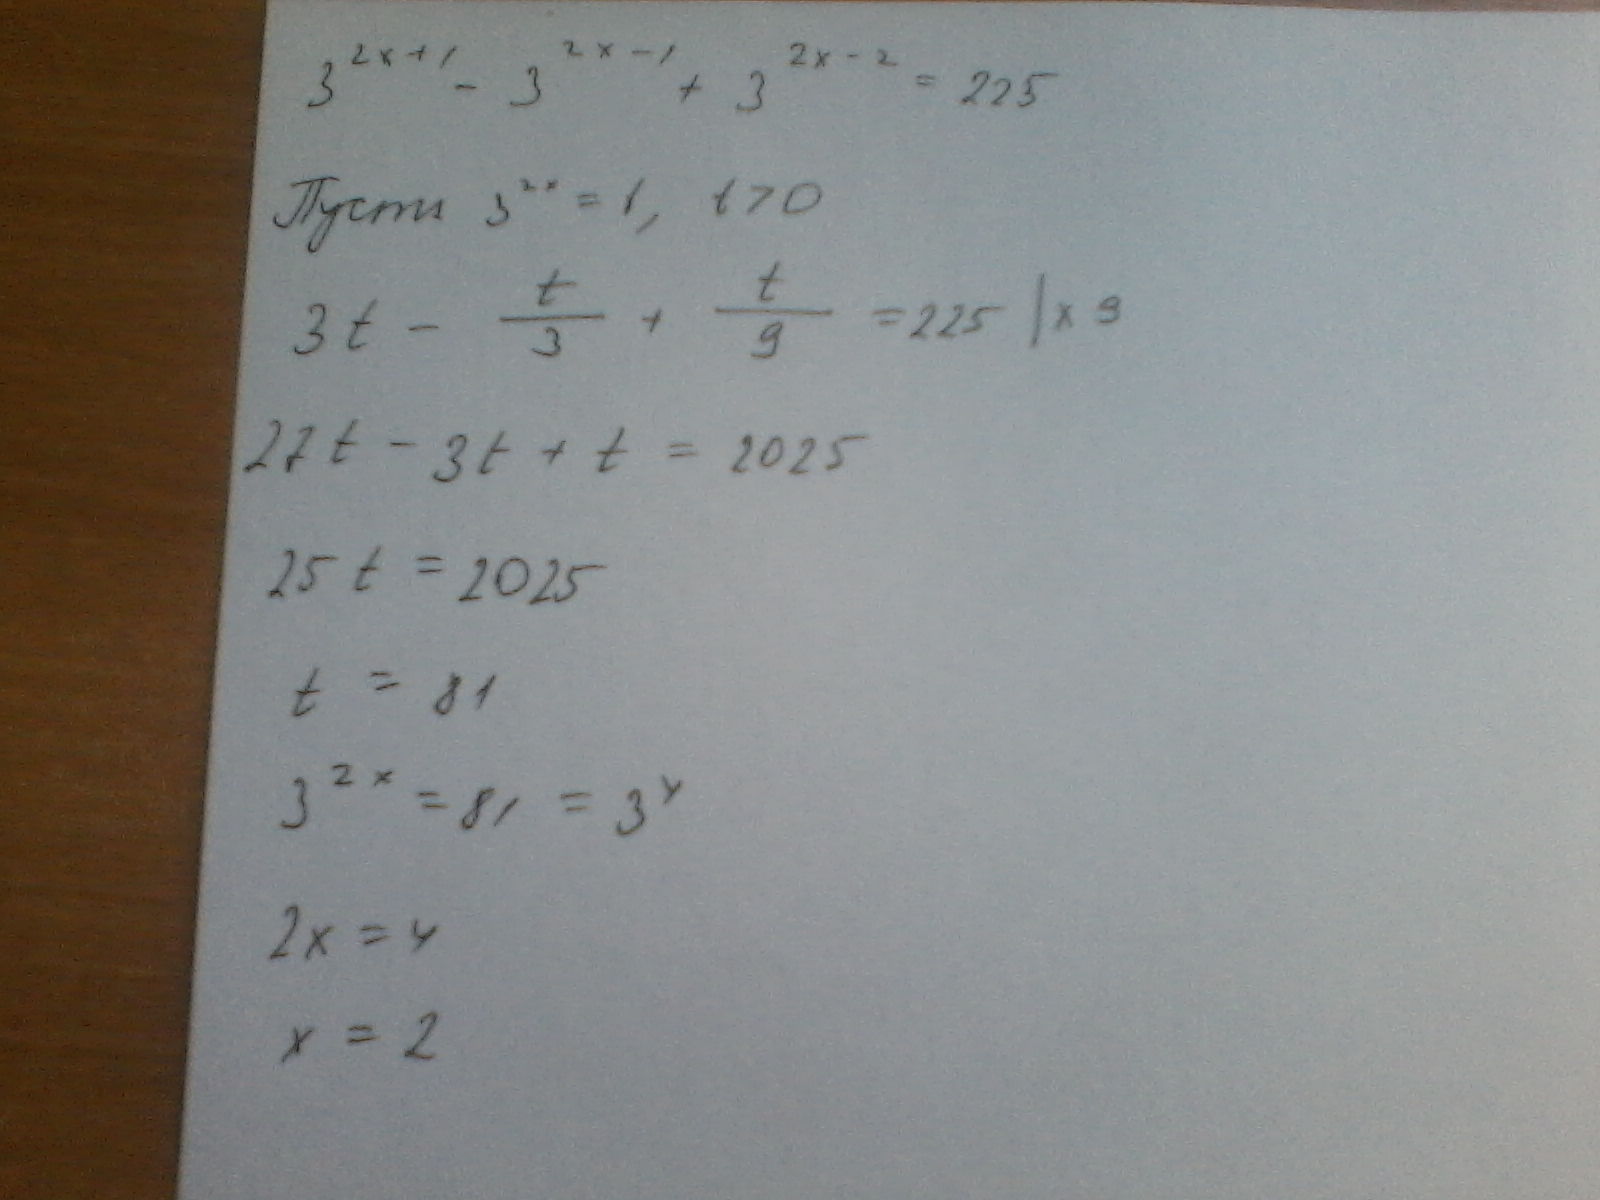 3^{2x+1} - 3^{2x-1} + 3^{2x-2} = 225
Пусть 3^{2x} = t, t > 0
3t - \frac{t}{3} + \frac{t}{9} = 225 | × 9
27t - 3t + t = 2025
25t = 2025
t = 81
3^{2x} = 81 = 3^4
2x = 4
x = 2